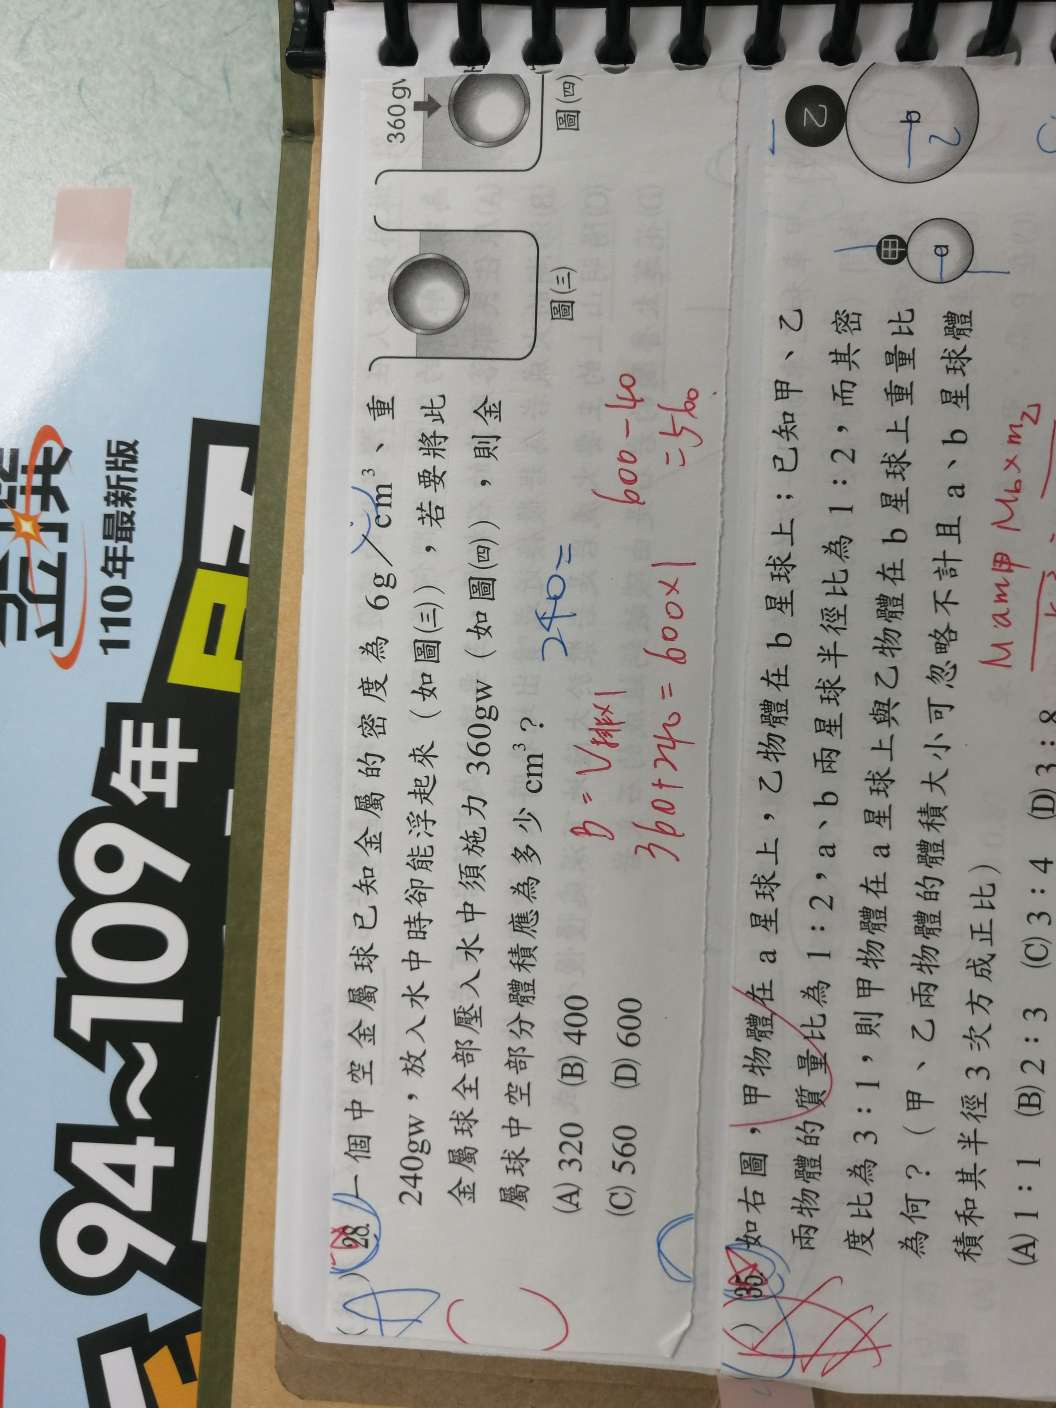 金撰
110年最新版
94~109年
28. 一個中空金屬球已知金屬的密度為 6g／cm³、重
240gw，放入水中時卻能浮起來（如圖㈢），若要將此
金屬球全部壓入水中須施力 360gw（如圖㈣），則金
屬球中空部分體積應為多少 cm³？
(A) 320 (B) 400
(C) 560 (D) 600
圖㈢
360 gw
圖㈣
240=
B = V排×1
360+240 = 600×1
600-40
=560
A
C
35. 如右圖，甲物體在 a 星球上，乙物體在 b 星球上；已知甲、乙
兩物體的質量比為 1：2，a、b 兩星球半徑比為 1：2，而其密
度比為 3：1，則甲物體在 a 星球上與乙物體在 b 星球上重量比
為何？（甲、乙兩物體的體積大小可忽略不計且 a、b 星球體
積和其半徑 3 次方成正比）
(A) 1：1 (B) 2：3 (C) 3：4 (D) 3：8
甲
a
1
乙
b
2
Ma m甲 Mb×m乙